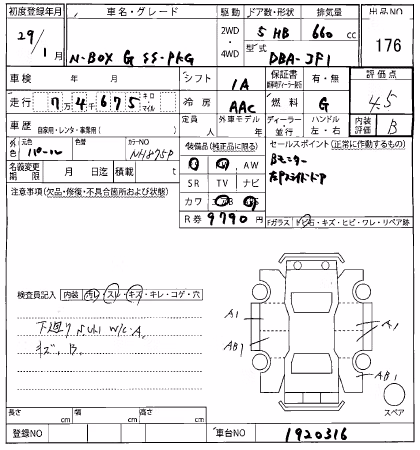 初度登録年月
車名・グレード
駆動
ドア数・形状
排気量
出品NO
29/1月
N-BOX G SS-PKG
2WD・4WD
5 HB
660 cc
型式
DBA-JF1
176
車検 年 月
シフト
IA
保証書
有・無
評価点
4.5
走行 7万4675 キロ・マイル
冷房
AAC
燃料
G
車歴 自家用・レンタ・事業用( )
定員 人
外車モデル 年
ディーラー・並行
ハンドル 左・右
内装評価
B
外色
元色
パール
色替
カラーNO
NH875P
装備品(純正品に限る)
セールスポイント(正常に作動するもの)
AW
Bモニター
左Pスライドドア
名義変更期限 月 日迄
積載 t
SR TV ナビ
カワ エアB
R券 9790円
注意事項(欠品・修復・不具合箇所および状態)
Fガラス トビ石・キズ・ヒビ・ワレ・リペア跡
検査員記入 内装 汚レ・スレ・キズ・キレ・コゲ・穴
下廻りサビ W/C A.
キズ. B.
A1
A1
AB1
AB1
スペア
長さ cm
幅 cm
高さ cm
登録NO
車台NO
1920316